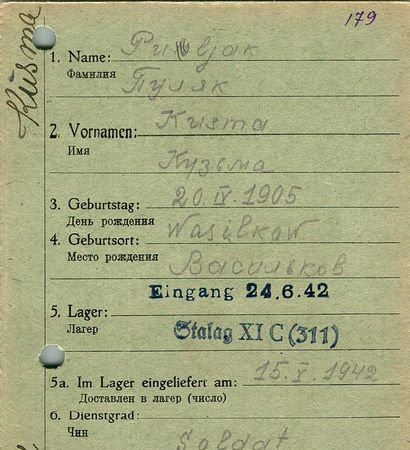 179
Kusma
1. Name: Puljak
Фамилия Пуляк
2. Vornamen: Kusma
Имя Кузьма
3. Geburtstag: 20. IV. 1905
День рождения
4. Geburtsort: Wasilkow
Место рождения Васильков
Eingang 24.6.42
5. Lager: Stalag XI C (311)
Лагер
5a. Im Lager eingeliefert am: 15. X. 1942
Доставлен в лагер (число)
6. Dienstgrad:
Чин Soldat